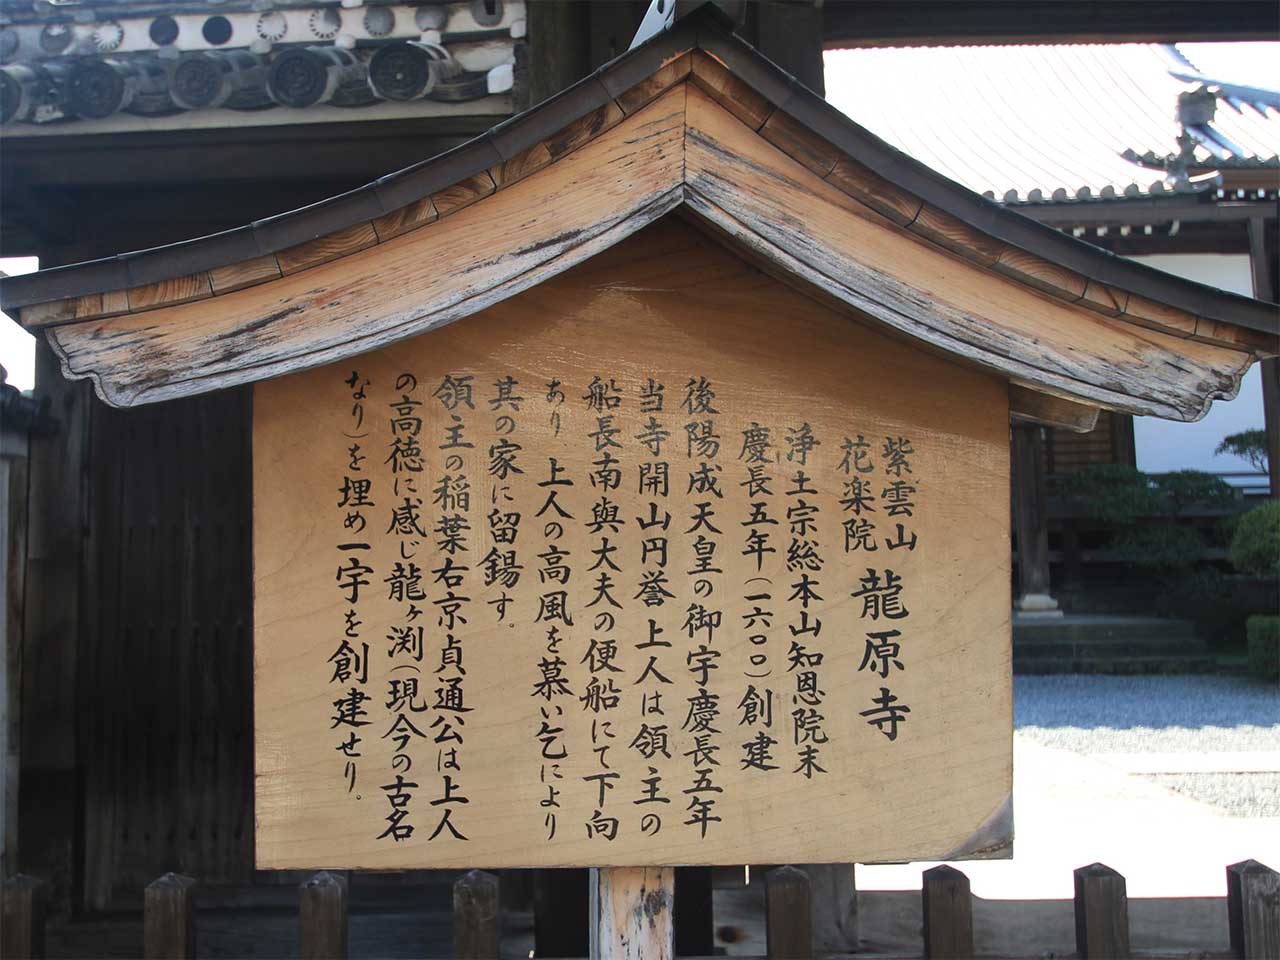 紫雲山
花楽院
龍原寺
浄土宗総本山知恩院末
慶長五年(一六〇〇)創建
後陽成天皇の御宇慶長五年
当寺開山円誉上人は領主の
船長南與大夫の便船にて下向
あり 上人の高風を慕い乞により
其の家に留錫す。
領主の稲葉右京貞通公は上人
の高徳に感じ龍ヶ渕(現今の古名
なり)を埋め一宇を創建せり。